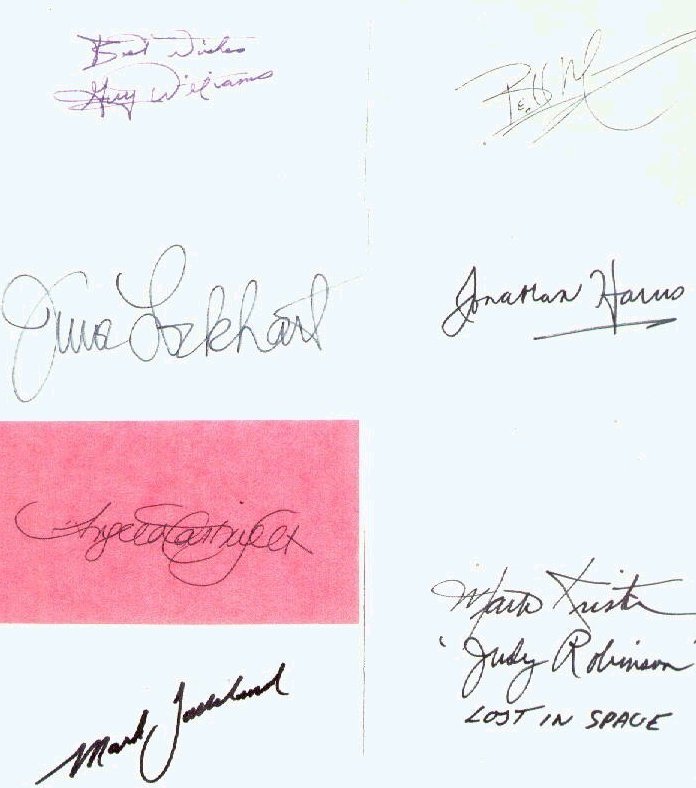 Best Wishes
Guy Williams
Bill M
June Lockhart
Jonathan Harris
Angela Cartwright
Marta Kristen
'Judy Robinson'
LOST IN SPACE
Mark Goddard